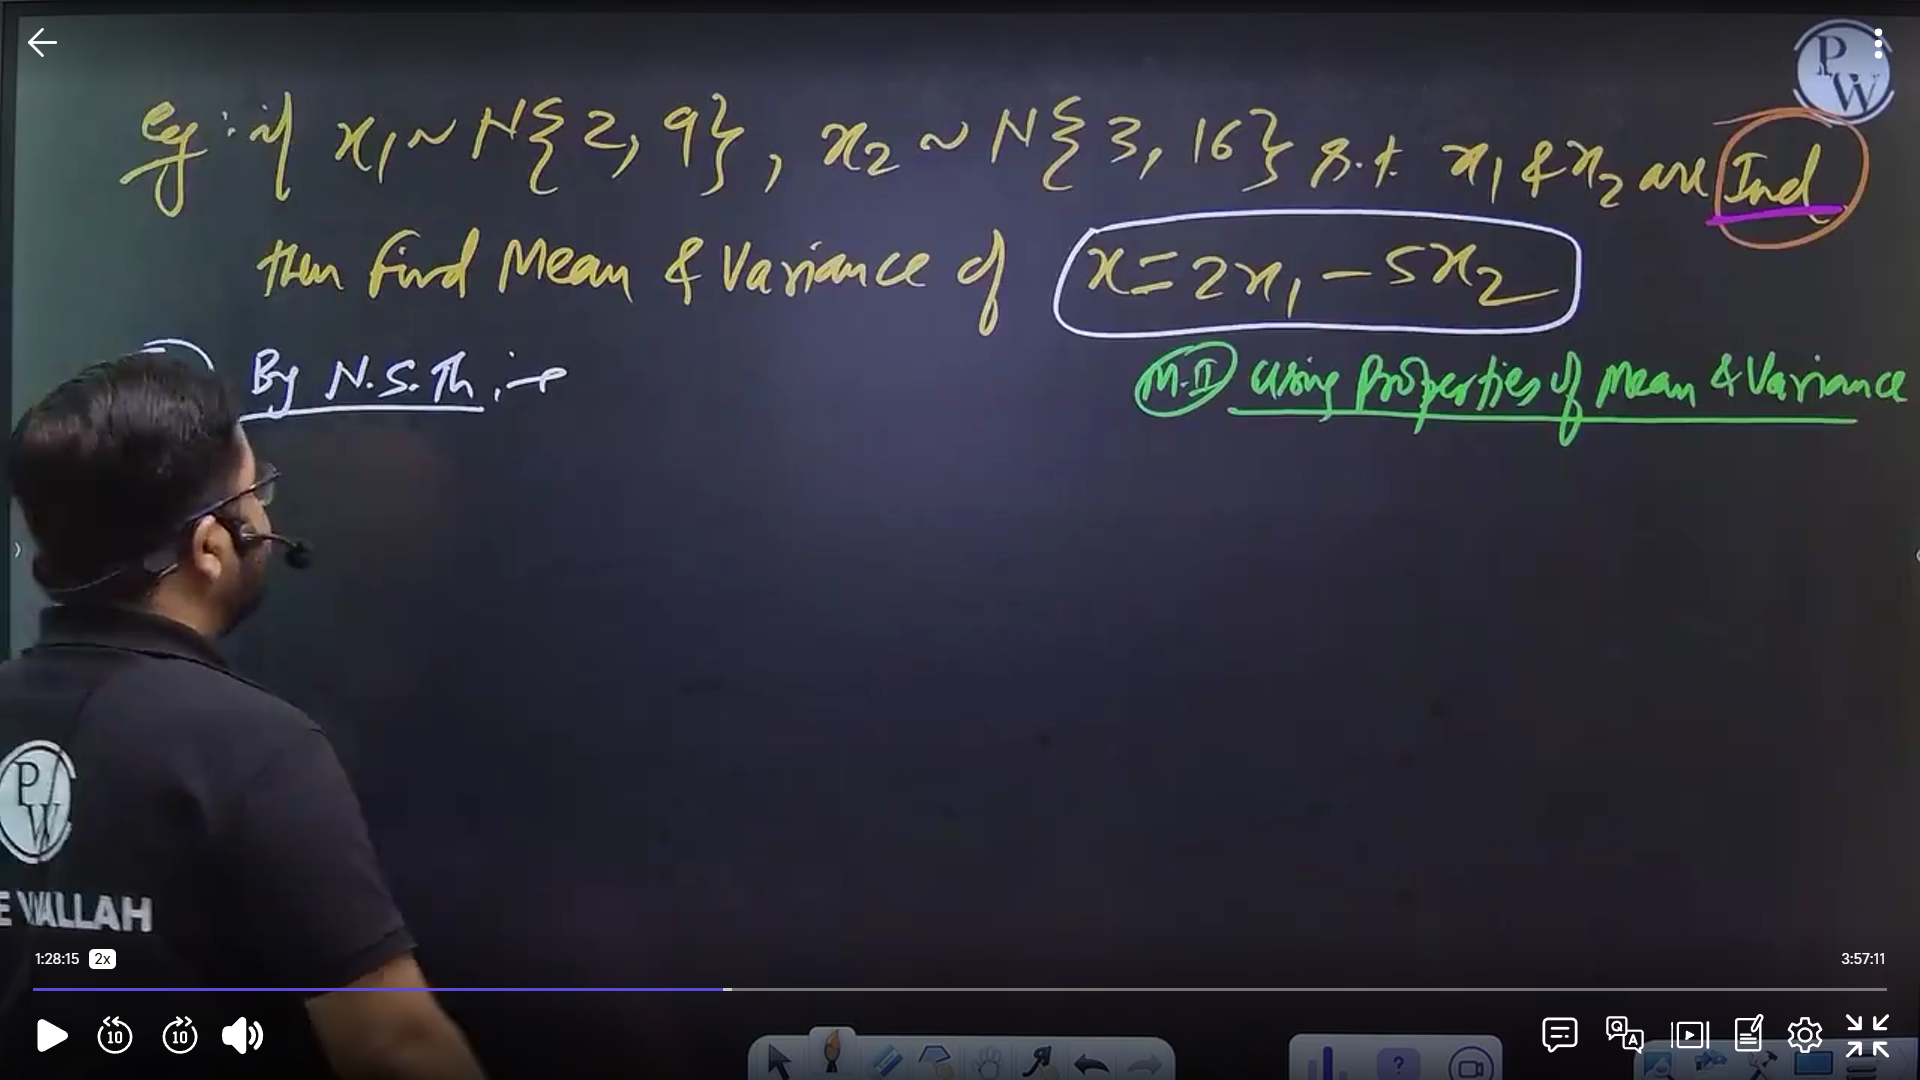 PW
eg: if x₁ ~ N{2, 9}, x₂ ~ N{3, 16} s.t. x₁ & x₂ are Ind
then find Mean & Variance of x = 2x₁ - 5x₂
By N.S.Th :→
M-II Using Properties of Mean & Variance
PW
E WALLAH
1:28:15 2x
3:57:11
10 10